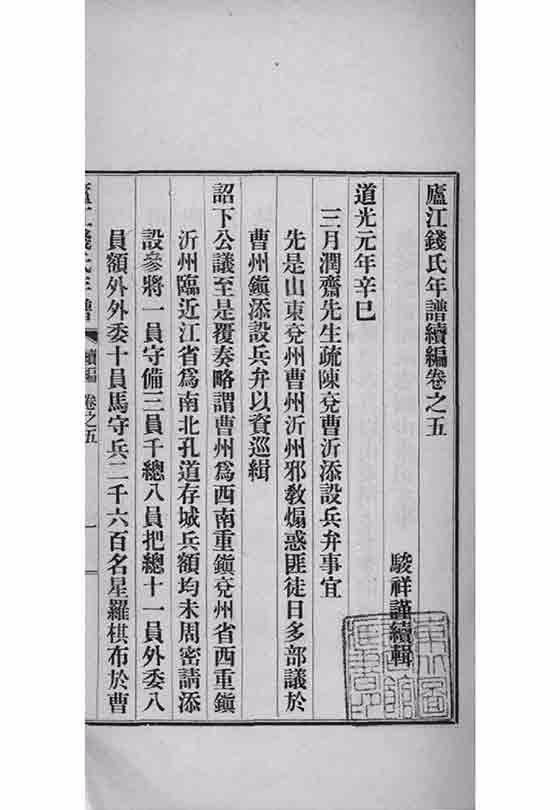 廬江錢氏年譜續編卷之五
駿祥謹續輯
道光元年辛巳
三月潤齋先生疏陳兗曹沂添設兵弁事宜
先是山東兗州曹州沂州邪教煽惑匪徒日多部議於
曹州鎮添設兵弁以資巡緝
詔下公議至是覆奏略謂曹州爲西南重鎮兗州省西重鎮
沂州臨近江省爲南北孔道存城兵額均未周密請添
設參將一員守備三員千總八員把總十一員外委八
員額外外委十員馬守兵二千六百名星羅棋布於曹
廬江錢氏年譜 續編 卷之五 一